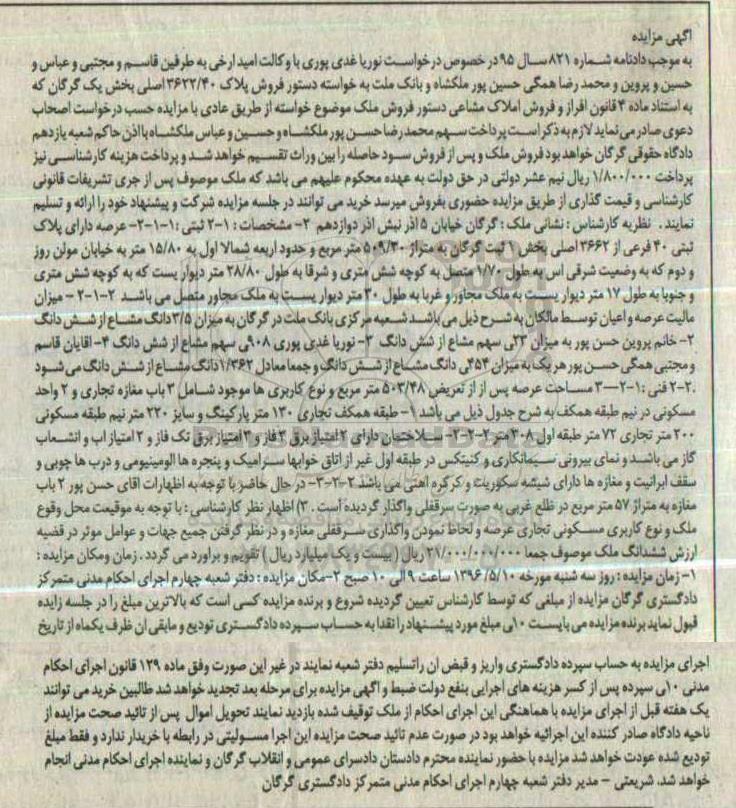 آگهی مزایده
به موجب دادنامه شماره ۸۲۱ سال ۹۵ در خصوص درخواست نوریا غدی پوری با وکالت امید ارخی به طرفین قاسم و مجتبی و عباس و
حسین و پروین و محمد رضا همگی حسین پور ملکشاه و بانک ملت به خواسته دستور فروش پلاک ۳۶۲۲/۴۰ اصلی بخش یک گرگان که
به استناد ماده ۴ قانون افراز و فروش املاک مشاعی دستور فروش ملک موضوع خواسته از طریق عادی با مزایده حسب درخواست اصحاب
دعوی صادر می نماید لازم به ذکر است پرداخت سهم محمد رضا حسن پور ملکشاه و حسین و عباس ملکشاه با اذن حاکم شعبه یازدهم
دادگاه حقوقی گرگان خواهد بود فروش ملک و پس از فروش سود حاصله را بین وراث تقسیم خواهد شد و پرداخت هزینه کارشناسی نیز
پرداخت ۱/۸۰۰/۰۰۰ ریال نیم عشر دولتی در حق دولت به عهده محکوم علیهم می باشد که ملک موصوف پس از جری تشریفات قانونی
کارشناسی و قیمت گذاری از طریق مزایده حضوری بفروش میرسد خرید می توانند در جلسه مزایده شرکت و پیشنهاد خود را ارائه و تسلیم
نمایند . نظریه کارشناس : نشانی ملک : گرگان خیابان ۵ اذر نبش اذر دوازدهم ۲- مشخصات : ۱-۲ ثبتی :۱-۱-۲- عرصه دارای پلاک
ثبتی ۴۰ فرعی از ۳۶۶۲ اصلی بخش ۱ ثبت گرگان به متراژ ۵۰۹/۳۰ متر مربع و حدود اربعه شمالا اول به ۱۵/۸۰ متر به خیابان مولن روز
و دوم که به وضعیت شرقی اس به طول ۱/۷۰ متصل به کوچه شش متری و شرقا به طول ۲۸/۸۰ متر دیوار یست که به کوچه شش متری
و جنوبا به طول ۱۷ متر دیوار یست به ملک مجاور و غربا به طول ۳۰ متر دیوار یست به ملک مجاور متصل می باشد ۲-۱-۲ - میزان
مالیت عرصه و اعیان توسط مالکان به شرح ذیل می باشد شعبه مرکزی بانک ملت در گرگان به میزان ۳/۵ دانگ مشاع از شش دانگ
۲- خانم پروین حسن پور به میزان سهم مشاع از شش دانگ ۳- نوریا غدی پوری سهم مشاع از شش دانگ ۴- اقایان قاسم
و مجتبی همگی حسن پور هر یک به میزان دانگ مشاع از شش دانگ و جمعا معادل ۱/۳۶۲ دانگ مشاع از شش دانگ می شود
.۲-۲ فنی :۱-۲-۳ مساحت عرصه پس از از تعریض ۵۰۳/۴۸ متر مربع و نوع کاربری ها موجود شامل ۳ باب مغازه تجاری و ۲ واحد
مسکونی در نیم طبقه همکف به شرح جدول ذیل می باشد ۱- طبقه همکف تجاری ۱۳۰ متر پارکینگ و سایز ۲۲۰ متر نیم طبقه مسکونی
۲۰۰ متر تجاری ۷۲ متر طبقه اول ۳۰۸ متر ۲-۲-۳- ساختمان دارای ۲ امتیاز برق ۳ فاز و ۳ امتیاز برق تک فاز و ۲ امتیاز اب و انشعاب
گاز می باشد و نمای بیرونی سیمانکاری و کنیتکس در طبقه اول غیر از اتاق خوابها سرامیک و پنجره ها الومینیومی و درب ها چوبی و
سقف ایرانیت و مغازه ها دارای شیشه سکوریت و کرکره اهنی می باشد ۲-۲-۳- در حال حاضر با توجه به اظهارات اقای حسن پور ۲ باب
مغازه به متراژ ۵۷ متر مربع در ظلع غربی به صورت سرقفلی واگذار گردیده است . ۳) اظهار نظر کارشناسی : با توجه به موقیعت محل وقوع
ملک و نوع کاربری مسکونی تجاری عرصه و لحاظ نمودن واگذاری سرقفلی مغازه و در نظر گرفتن جمیع جهات و عوامل موثر در قضیه
ارزش ششدانگ ملک موصوف جمعا ۲۱/۰۰۰/۰۰۰/۰۰۰ ریال ( بیست و یک میلیارد ریال ) تقویم و براورد می گردد . زمان ومکان مزایده :
۱- زمان مزایده : روز سه شنبه مورخه ۱۳۹۶/۵/۱۰ ساعت ۹ الی ۱۰ صبح ۲-مکان مزایده : دفتر شعبه چهارم اجرای احکام مدنی متمرکز
دادگستری گرگان مزایده از مبلغی که توسط کارشناس تعیین گردیده شروع و برنده مزایده کسی است که بالاترین مبلغ را در جلسه زایده
قبول نماید برنده مزایده می بایست ۱۰ی مبلغ مورد پیشنهاد را نقدا به حساب سپرده دادگستری تودیع و مابقی ان ظرف یکماه از تاریخ
اجرای مزایده به حساب سپرده دادگستری واریز و قبض ان راتسلیم دفتر شعبه نمایند در غیر این صورت وفق ماده ۱۲۹ قانون اجرای احکام
مدنی ۱۰ی سپرده پس از کسر هزینه های اجرایی بنفع دولت ضبط و اگهی مزایده برای مرحله بعد تجدید خواهد شد طالبین خرید می توانند
یک هفته قبل از اجرای مزایده با هماهنگی این اجرای احکام از ملک توقیف شده بازدید نمایند تحویل اموال پس از تائید صحت مزایده از
ناحیه دادگاه صادر کننده این اجرائیه خواهد بود در صورت عدم تائید صحت مزایده این اجرا مسولیتی در رابطه با خریدار ندارد و فقط مبلغ
تودیع شده عودت خواهد شد مزایده با حضور نماینده محترم دادستان دادسرای عمومی و انقلاب گرگان و نماینده اجرای احکام مدنی انجام
خواهد شد. شریعتی - مدیر دفتر شعبه چهارم اجرای احکام مدنی متمرکز دادگستری گرگان